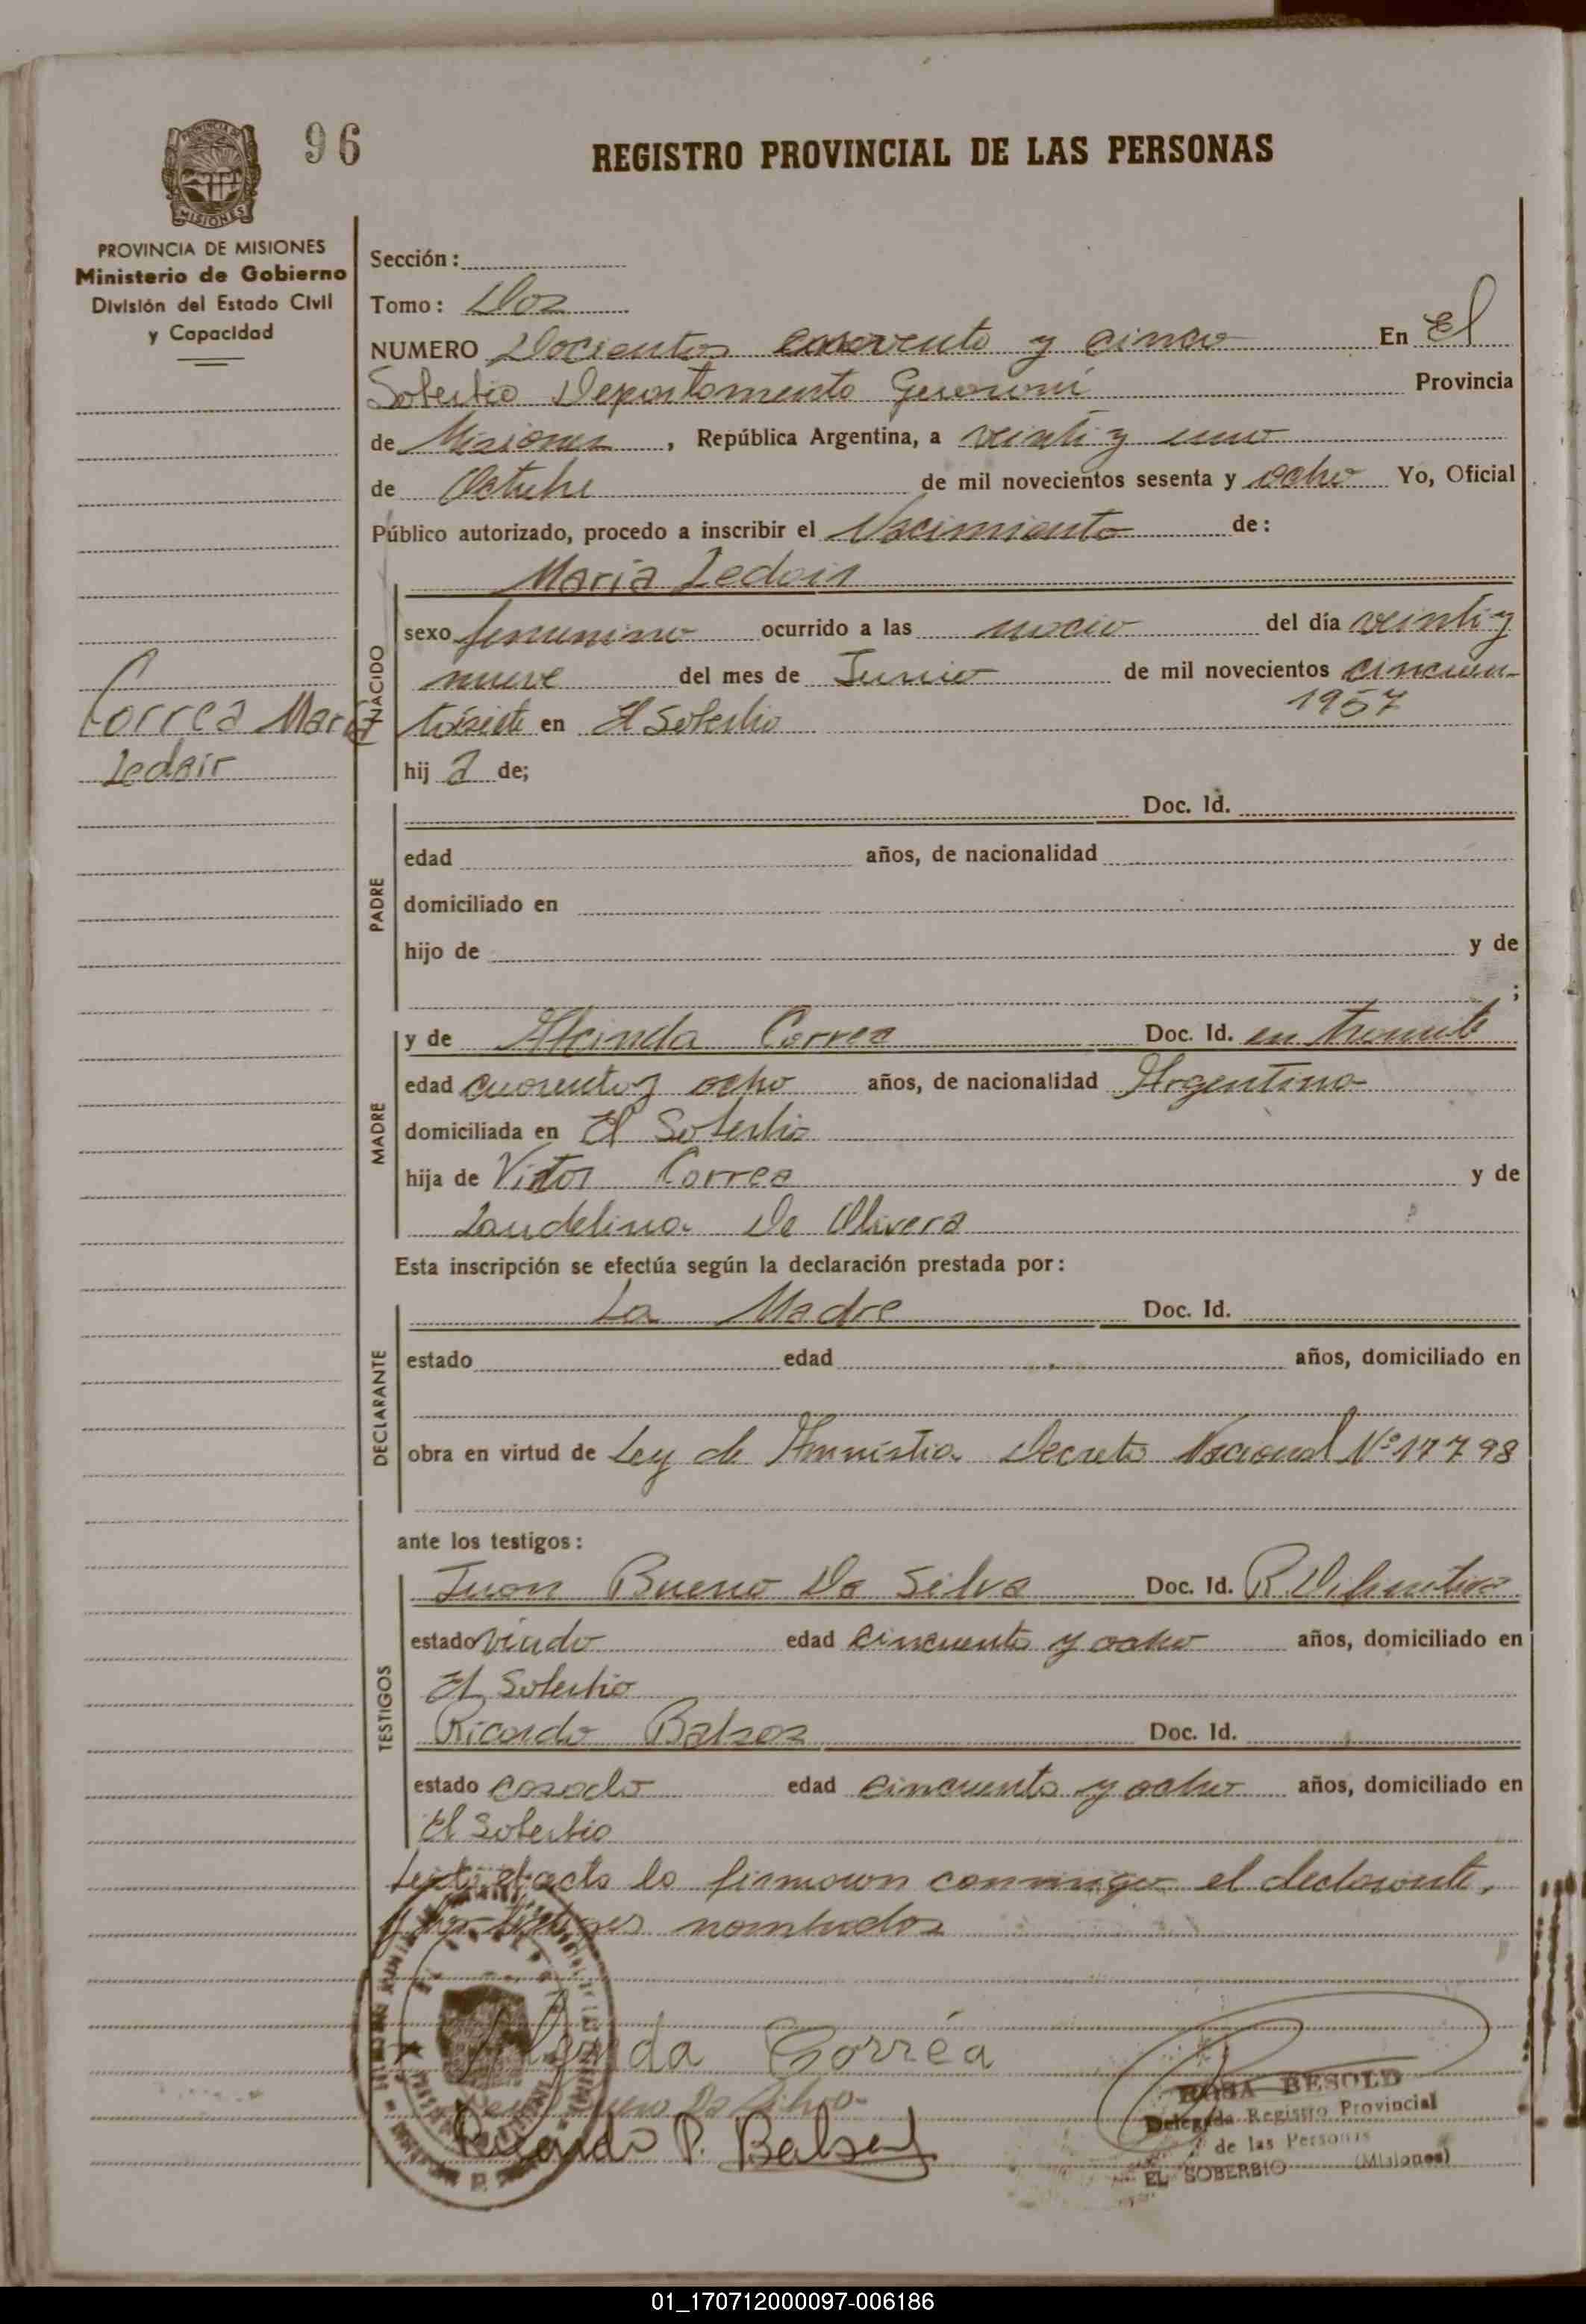 96
REGISTRO PROVINCIAL DE LAS PERSONAS
PROVINCIA DE
MISIONES
PROVINCIA DE MISIONES
Ministerio de Gobierno
División del Estado Civil
y Capacidad
Sección:
Tomo: Dos
NUMERO Docientos y cinco En El
Soberbio Departamento Guaraní Provincia
de Misiones, República Argentina, a veinti y uno
de Octubre de mil novecientos sesenta y ocho Yo, Oficial
Público autorizado, procedo a inscribir el Nacimiento de:
Maria Ledair
sexo femenino ocurrido a las del día veinti y
nueve del mes de Junio de mil novecientos cincuen-
1957
taisiete en El Soberbio
hij a de;
NACIDO
Correa Maria
Ledair
Doc. Id.
edad años, de nacionalidad
domiciliado en
hijo de y de
;
PADRE
y de Alcinda Correa Doc. Id. en tramite
edad cuarenta y ocho años, de nacionalidad Argentina
domiciliada en El Soberbio
hija de Victor Correa y de
Laudelina De Olivera
MADRE
Esta inscripción se efectúa según la declaración prestada por:
La Madre Doc. Id.
estado edad años, domiciliado en
obra en virtud de Ley de Amnistia Decreto Nacional Nº 17798
DECLARANTE
ante los testigos:
Juan Bueno Da Silva Doc. Id.
estado viudo edad cincuenta y ocho años, domiciliado en
El Soberbio
Ricardo Balzoz Doc. Id.
estado casado edad cincuenta y ocho años, domiciliado en
El Soberbio
TESTIGOS
acta la firmaron conmigo el declarante,
nombrados
Corréa
Da Silva
Ricardo P.
ROSA BESOLD
Delegada Registro Provincial
de las Personas
EL SOBERBIO (Misiones)
01_170712000097-006186